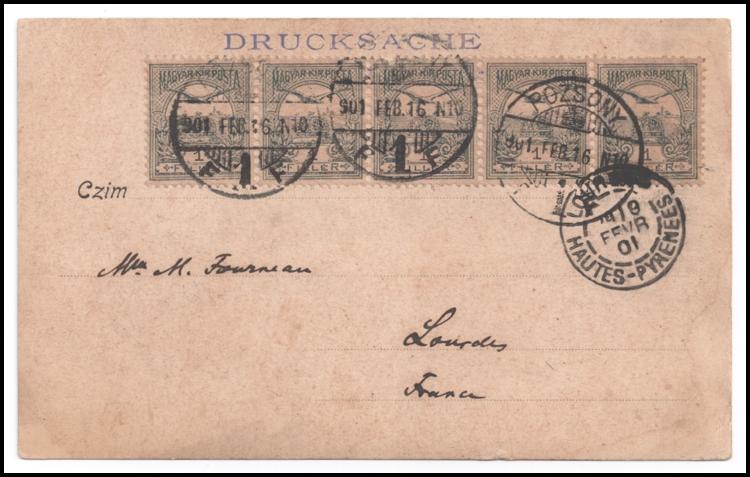 DRUCKSACHE
MAGYAR·KIR·POSTA MAGYAR·KIR·POSTA MAGYAR·KIR·POSTA MAGYAR·KIR·POSTA MAGYAR·KIR·POSTA
1 FILLER 1 FILLER 1 FILLER 1 FILLER 1 FILLER
901 FEB.16 N10
901 FEB.16 N10
POZSONY
901 FEB.16 N10
LOURDES
19
FEVR
01
HAUTES-PYRENEES
Czim
M. Fourneau
Lourdes
France